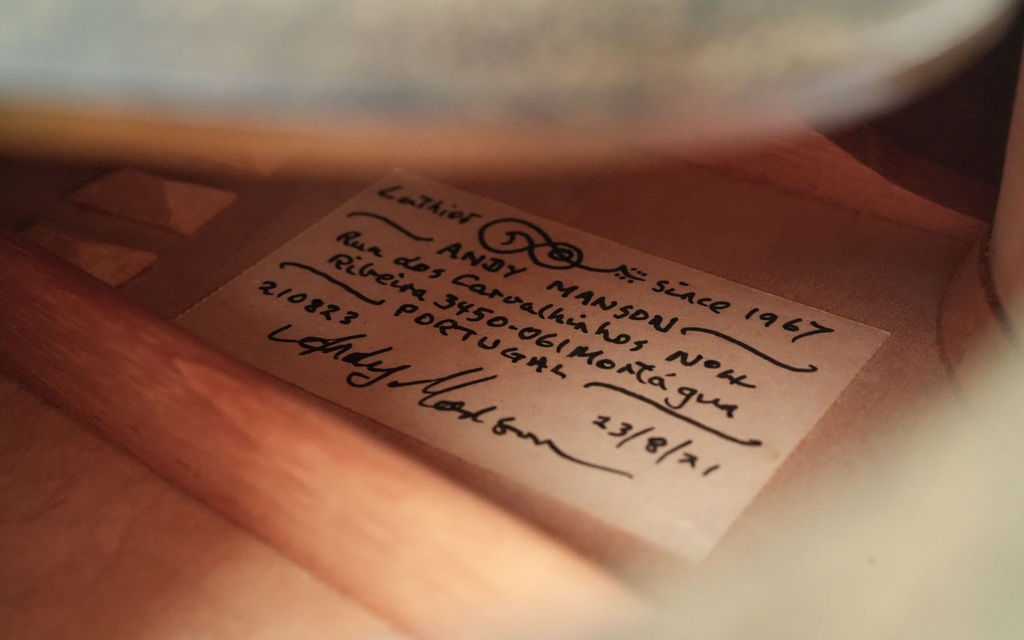 Luthier since 1967
ANDY MANSON
Rua dos Carvalhinhos Nº4
Ribeira 3450-061 Mortágua
PORTUGAL
210823 23/8/21
Andy Manson